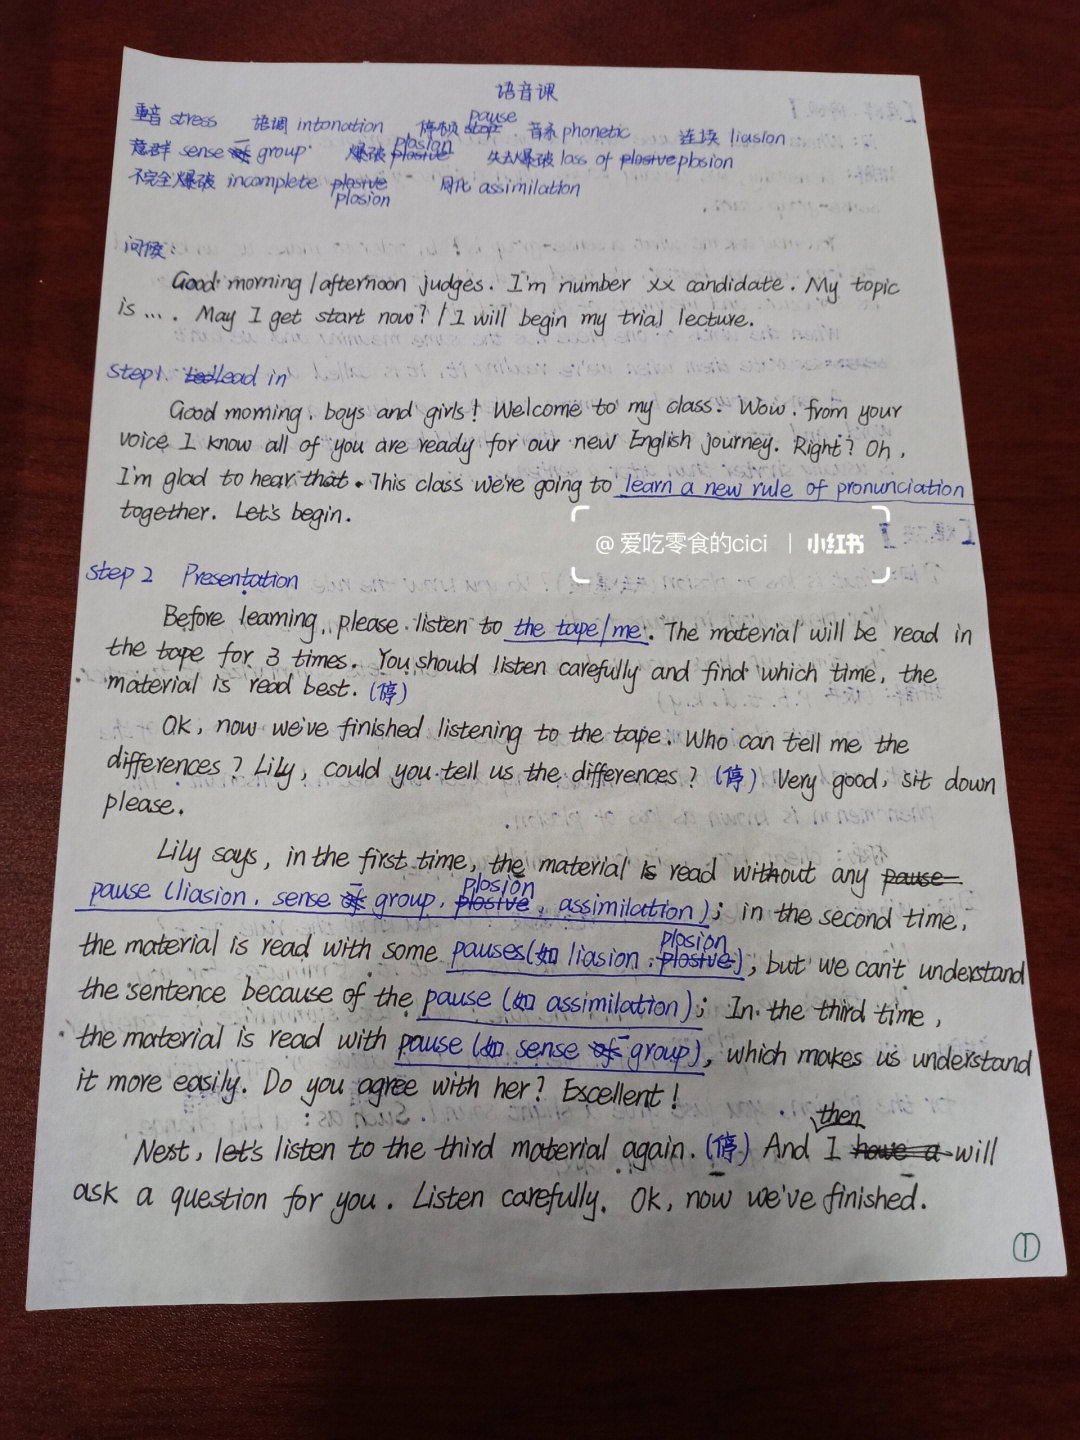 语音课
重音 stress 语调 intonation 停顿 stop pause 音系 phonetic 连读 liasion
意群 sense of group 爆破 plosive plosion 失去爆破 loss of plosive plosion
不完全爆破 incomplete plosive plosion 同化 assimilation
问候:
Good morning /afternoon judges. I'm number xx candidate. My topic
is .... May I get start now? / I will begin my trial lecture.
Step1. Lead in
Good morning, boys and girls! Welcome to my class. Wow, from your
voice I know all of you are ready for our new English journey. Right? Oh,
I'm glad to hear that. This class we're going to learn a new rule of pronunciation
together. Let's begin.
@ 爱吃零食的cici | 小红书
Step 2 Presentation
Before learning, please listen to the tape/me. The material will be read in
the tape for 3 times. You should listen carefully and find which time, the
material is read best. (停)
Ok, now we've finished listening to the tape. Who can tell me the
differences? Lily, could you tell us the differences? (停) Very good, sit down
please.
Lily says, in the first time, the material is read without any pause
pause (liasion, sense of group, plosive plosion, assimilation); in the second time,
the material is read with some pauses(如 liasion, plosive plosion), but we can't understand
the sentence because of the pause (如 assimilation); In the third time,
the material is read with pause (如 sense of group), which makes us understand
it more easily. Do you agree with her? Excellent!
Next, let's listen to the third material again. (停) And then I have a will
ask a question for you. Listen carefully. Ok, now we've finished.
①